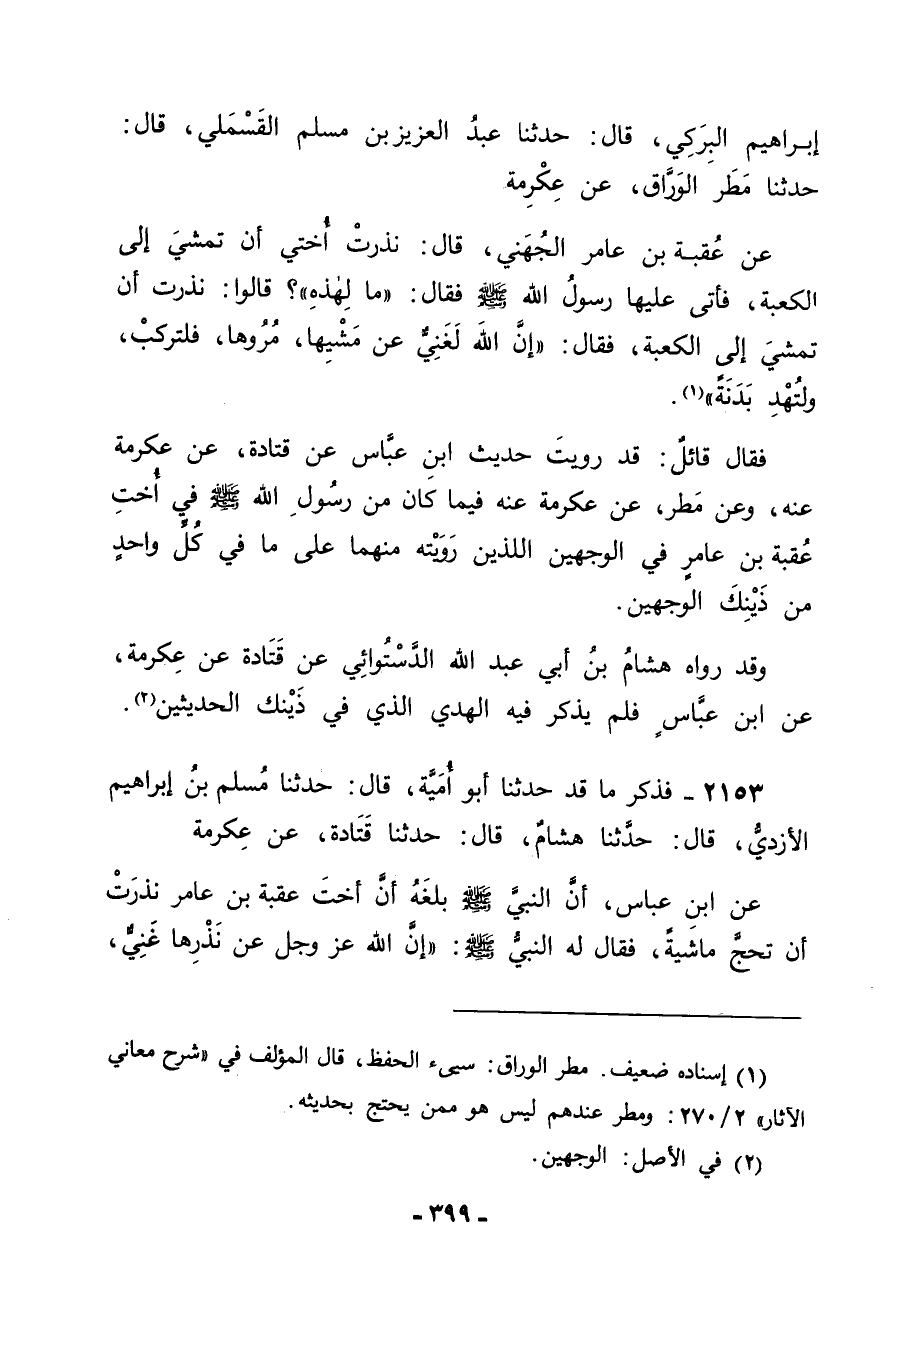 إبراهيم البِرَكِي، قال: حدثنا عبدُ العزيز بن مسلم القَسْمَلي، قال:
حدثنا مَطَر الوَرَّاق، عن عِكْرِمة
عن عُقبة بن عامر الجُهَني، قال: نذرتْ أُختي أن تمشيَ إلى
الكعبة، فأتى عليها رسولُ الله ﷺ فقال: «ما لِهٰذِهِ»؟ قالوا: نذرت أن
تمشيَ إلى الكعبة، فقال: «إنَّ اللهَ لَغَنِيٌّ عن مَشْيِها، مُرُوها، فلتركبْ،
ولتُهْدِ بَدَنَةً»(١).
فقال قائلٌ: قد رويتَ حديث ابنِ عبَّاس عن قتادة، عن عكرمة
عنه، وعن مَطر، عن عكرمة عنه فيما كان من رسُولِ الله ﷺ في أُختِ
عُقبة بن عامرٍ في الوجهين اللذين رَوَيْته منهما على ما في كُلِّ واحدٍ
من ذَيْنِكَ الوجهين.
وقد رواه هشامُ بنُ أبي عبد الله الدَّسْتُوائِي عن قَتَادة عن عِكرمة،
عن ابن عبَّاسٍ فلم يذكر فيه الهدي الذي في ذَيْنك الحديثين(٢).
٢١٥٣ - فذكر ما قد حدثنا أبو أُمَيَّة، قال: حدثنا مُسلم بنُ إبراهيم
الأزديُّ، قال: حدَّثنا هشامٌ، قال: حدثنا قَتَادة، عن عِكرمة
عن ابنِ عباس، أنَّ النبيَّ ﷺ بلغَهُ أنَّ أختَ عقبة بن عامر نذرَتْ
أن تحجَّ ماشيةً، فقال له النبيُّ ﷺ: «إنَّ الله عز وجل عن نَذْرِها غَنِيٌّ،
(١) إسناده ضعيف. مطر الوراق: سيىء الحفظ، قال المؤلف في «شرح معاني
الآثار» ٢/٢٧٠: ومطر عندهم ليس هو ممن يحتج بحديثه.
(٢) في الأصل: الوجهين.
- ٣٩٩ -